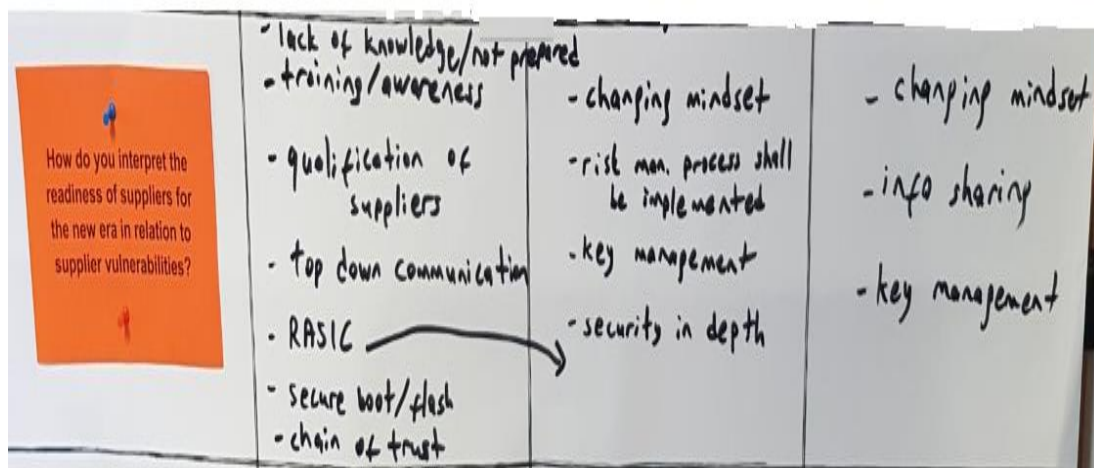 How do you interpret the
readiness of suppliers for
the new era in relation to
supplier vulnerabilities?
- lack of knowledge/not prepared
- training/awareness
- qualification of
suppliers
- top down communication
- RASIC
- secure boot/flash
- chain of trust
- changing mindset
- risk man. process shall
be implemented
- key management
- security in depth
- changing mindset
- info sharing
- key management